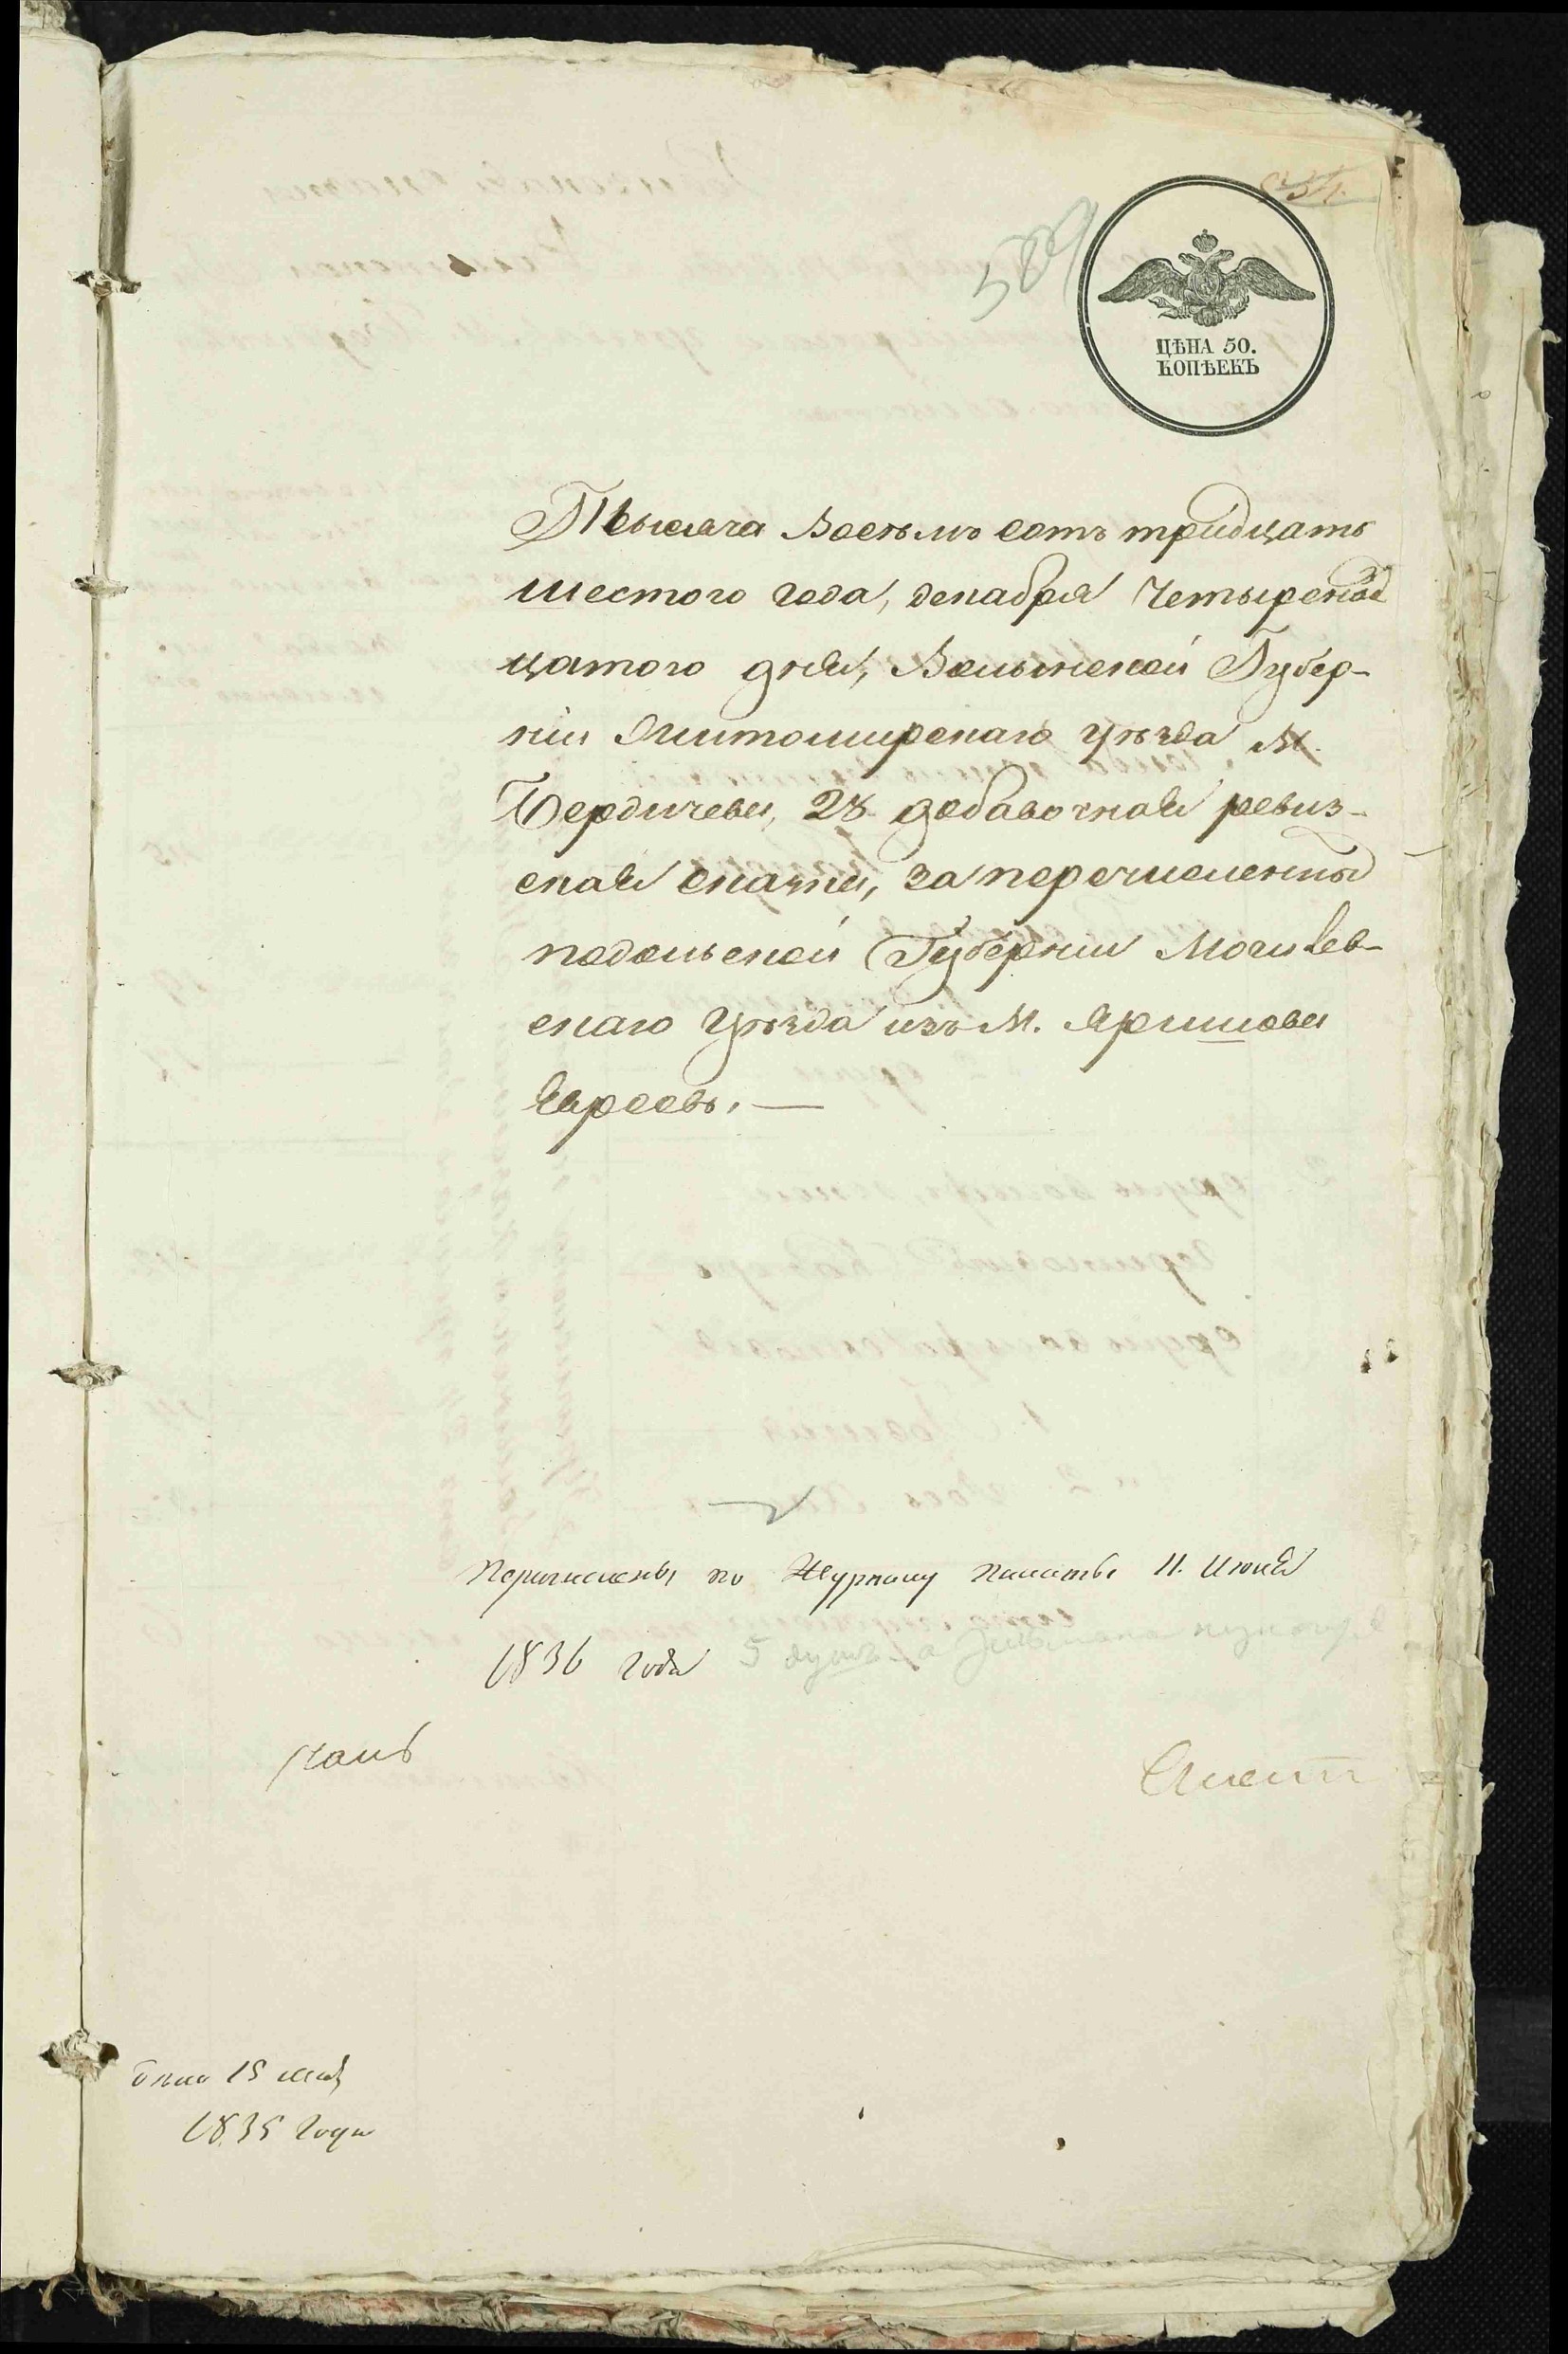 589
ЦѢНА 50.
КОПѢЕКЪ
Тысяча Восемь сотъ тридцать
шестого года, декабря Четыренад
цатого дня, Волынской Губер-
ніи Житомирскаго уѣзда М.
Бердичева, 28 добавочная ревиз-
ская сказка, за перечисленныхъ
подольской Губерніи Могилев-
скаго уѣзда изъ М. Яришова
Евреевъ. —
Перечислены по Журналу Палаты 11. Июня
1836 года 5 душъ а
15 мая
1835 года